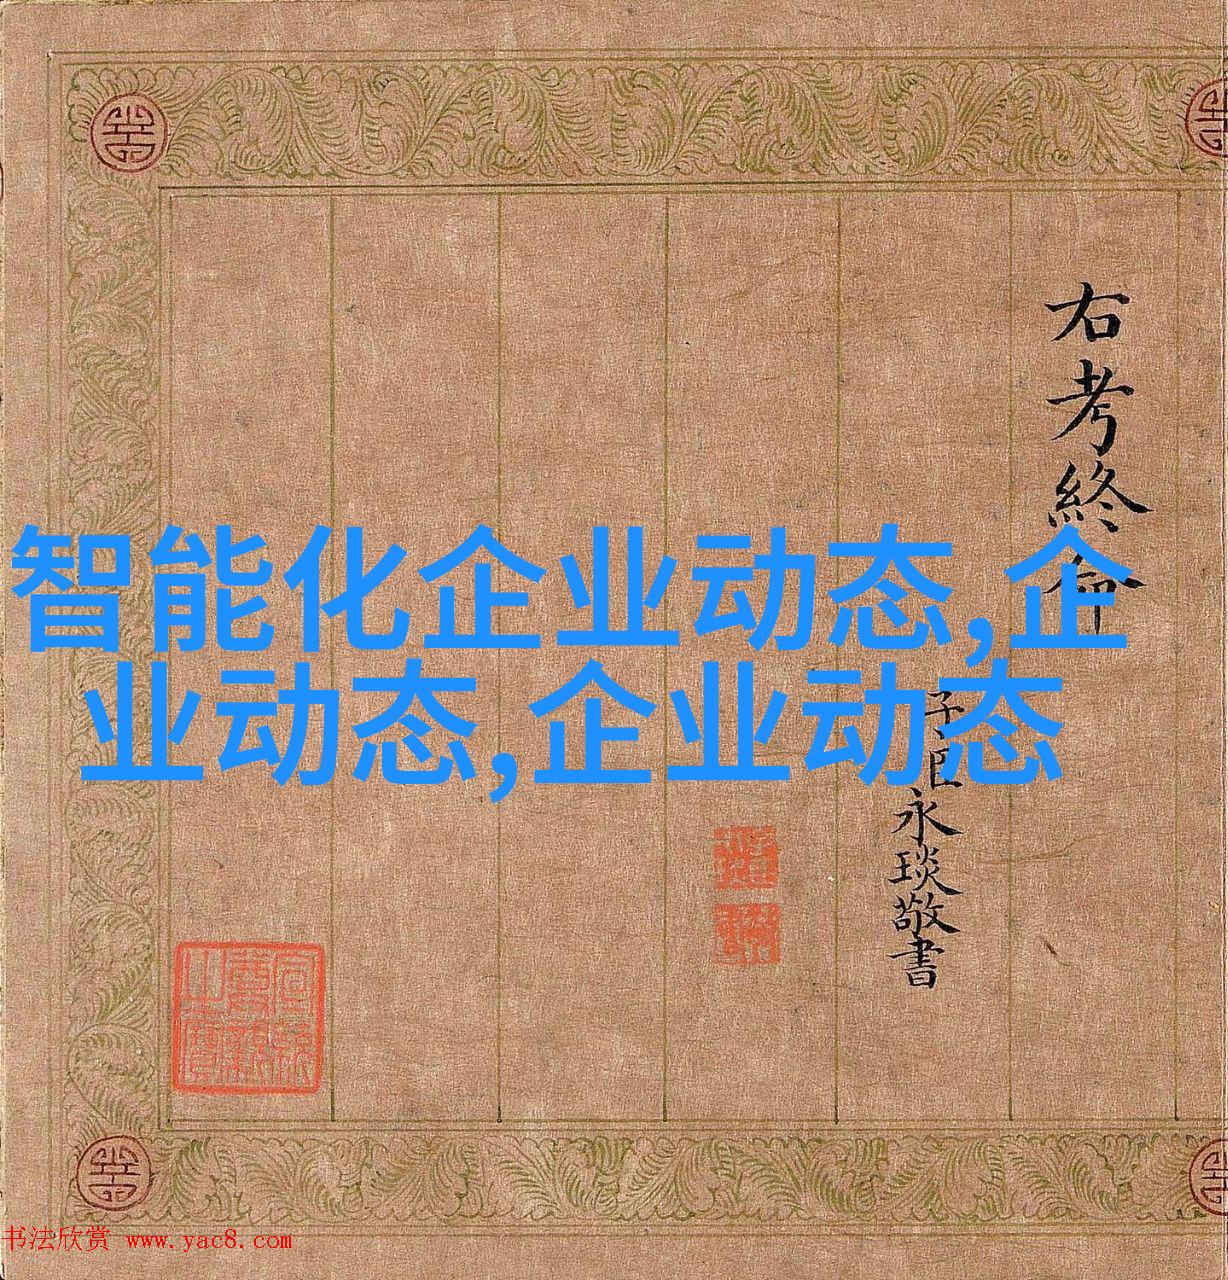 右考終命
子臣永琰敬書
智能化企业动态,企
业动态,企业动态
书法欣赏 www.yac8.com